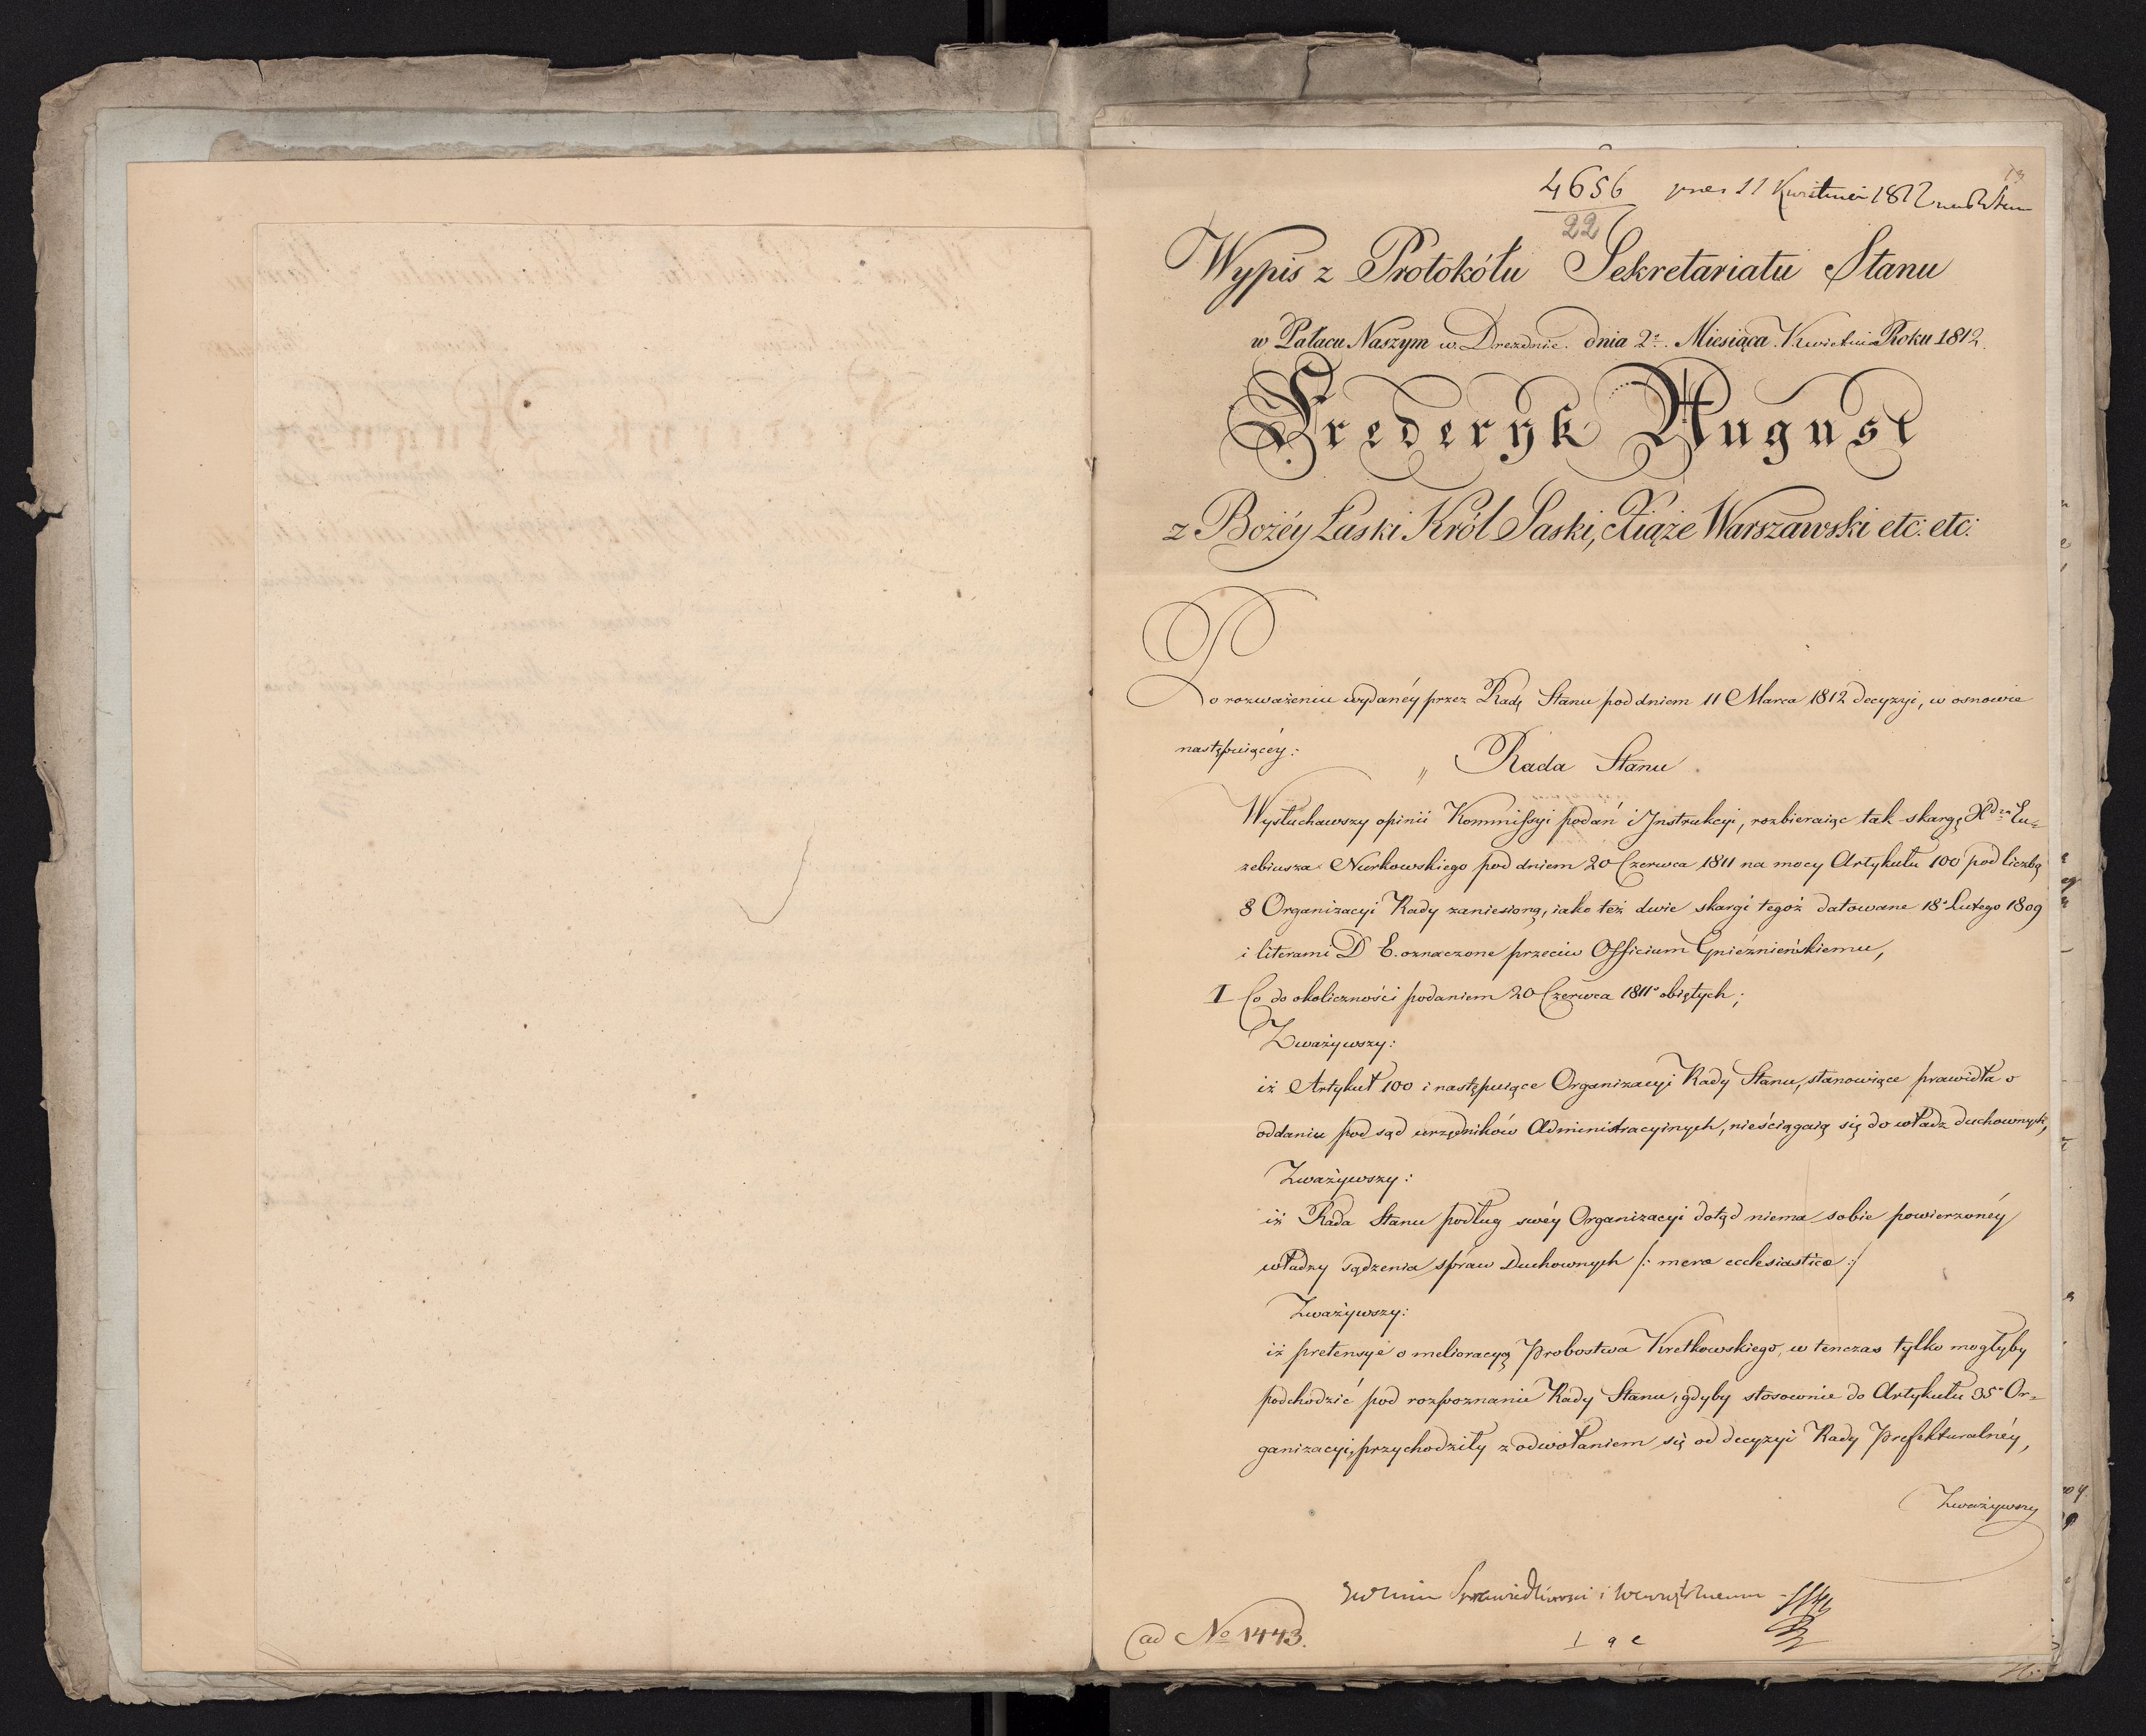 13
4656 pres 11 Kwietnia 1812
22
Wypis z Protokółu Sekretariatu Stanu
w Pałacu Naszym w Dreznie. dnia 2° Miesiąca Kwietnia Roku 1812.
Frederyk August
z Bożéy Łaski Król Saski, Xiąże Warszawski etc: etc:
Po rozważeniu wydanéy przez Radę Stanu pod dniem 11 Marca 1812 decyzyi, w osnowie
następuiącéy:
" Rada Stanu
Wysłuchawszy opinii Kommissyi podań i Instrukcyi, rozbieraiąc tak skargę Xdza Eu=
zebiusza Nurkowskiego pod dniem 20 Czerwca 1811 na mocy Artykułu 100 pod liczbą
8 Organizacyi Rady zaniesioną, iako też dwie skargi tegoż datowane 18° Lutego 1809
i literami D E. oznaczone przeciw Officium Gnieźnieńskiemu,
I Co do okoliczności podaniem 20 Czerwca 1811° obiętych;
Zważywszy:
iż Artykuł 100 i następuiące Organizacyi Rady Stanu, stanowiące prawidła o
oddaniu pod sąd urzędników Administracyinych, nieściągaią się do władz duchownych,
Zważywszy:
iż Rada Stanu podług swéy Organizacyi dotąd niema sobie powierzonéy
władzy sądzenia spraw Duchownych /: mere ecclesiastica :/
Zważywszy:
iż pretensye o melioracyą Probostwa Kretkowskiego, w tenczas tylko mogłyby
podchodzić pod rozpoznanie Rady Stanu, gdyby stosownie do Artykułu 35° Or=
ganizacyi, przychodziły z odwołaniem się od decyzyi Rady Prefekturalnéy,
Zważywszy
Sprawiedliwości i Wewnętrznemu
ad No 1443.